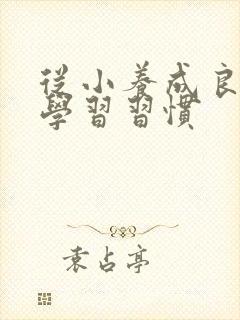 從小養成良
學習習慣
袁占亭